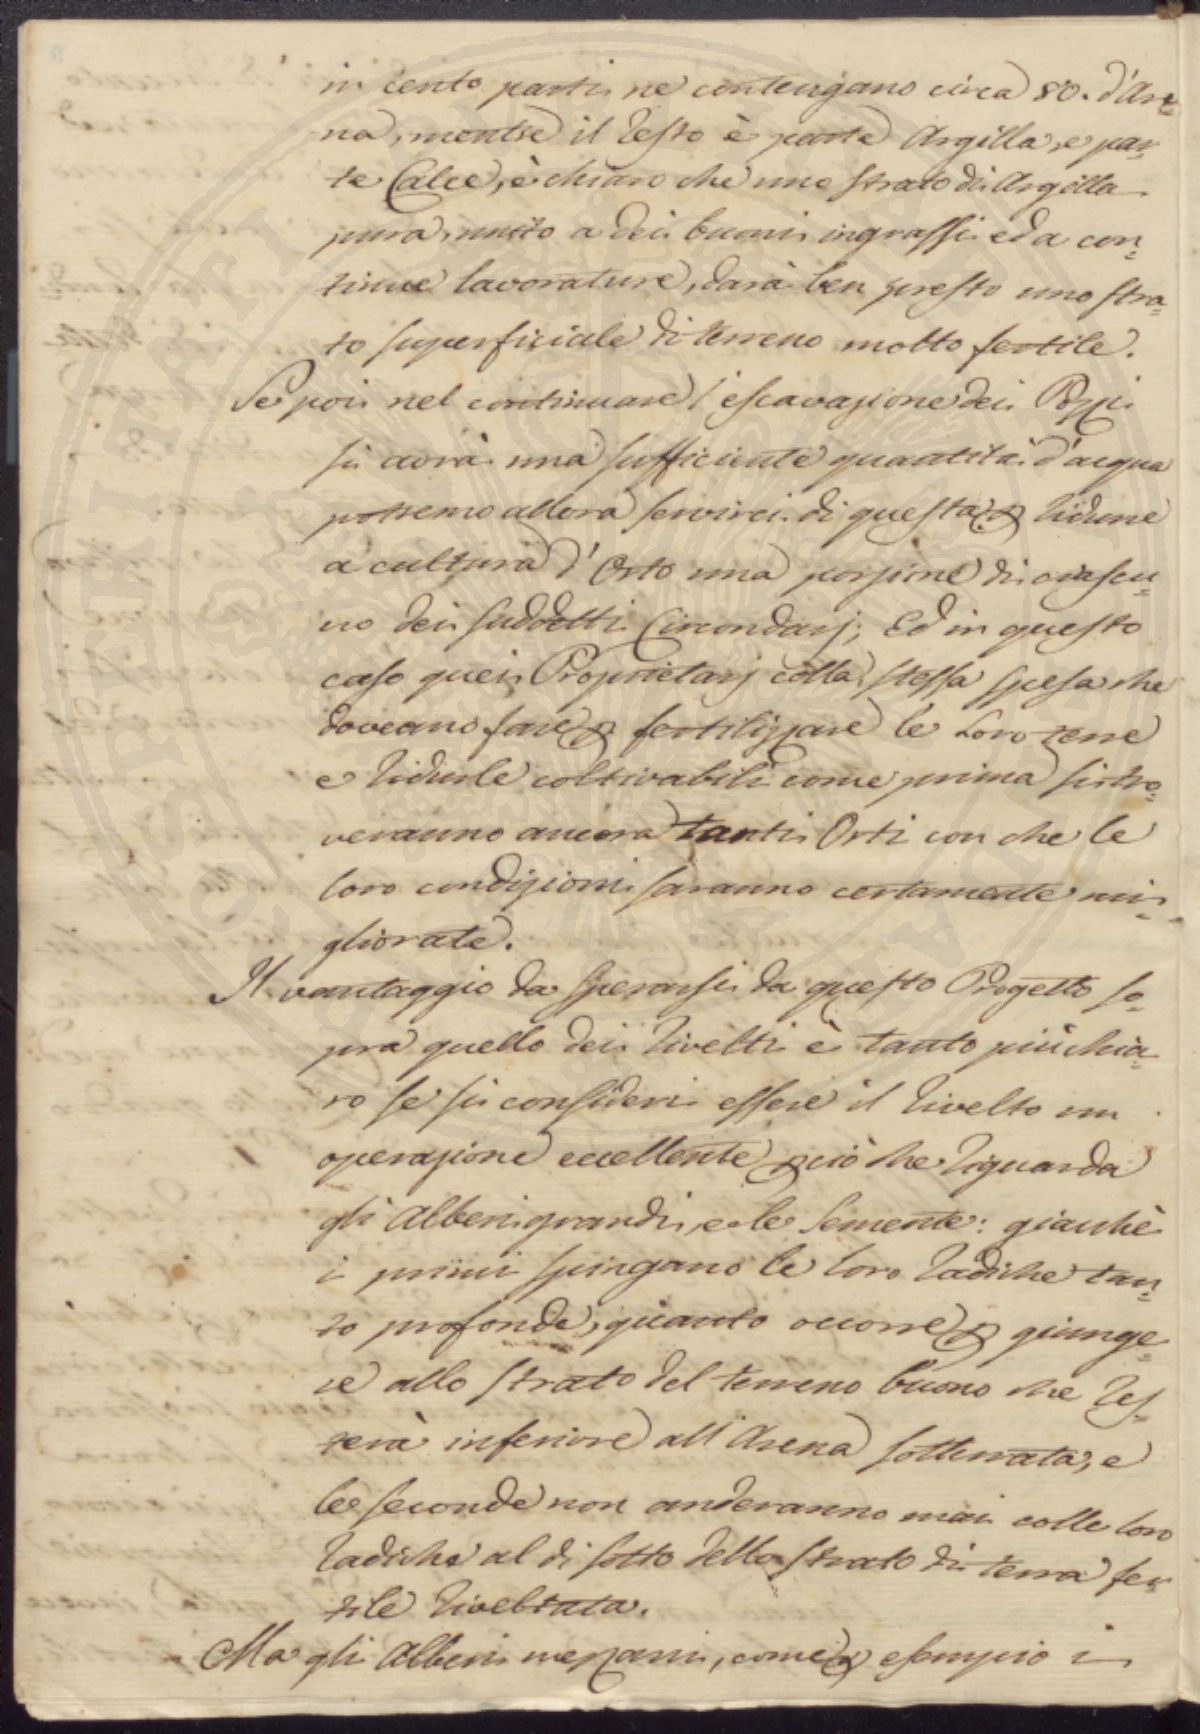 in cento parti ne contengano circa 80. d'Are=
na, mentre il resto è parte Argilla, e par=
te Calce, è chiaro che uno strato di Argilla
pura, unito a dei buoni ingrassi ed a con=
tinue lavorature, darà ben presto uno stra=
to superficiale di terreno molto fertile.
Se poi nel continuare l'escavazione dei Pozzi
si avrà una sufficiente quantità d'acqua
potremo allora servirci di questa p ridurre
a cultura d'Orto una porzione di ciascu=
no dei suddetti Circondarj; Ed in questo
caso quei Proprietarj colla stessa spesa che
doveano fare p fertilizzare le Loro terre
e ridurle coltivabili come prima si tro=
veranno ancora tanti Orti con che le
loro condizioni saranno certamente mi=
gliorate.
Il vantaggio da sperarsi da questo Progetto so=
pra quello dei rivelti è tanto più chia=
ro se si consideri essere il rivelto un
operazione eccellente p ciò che riguarda
gli Alberi grandi, e le Semente: giacchè
i primi spingano le loro radiche tan=
to profonde, quanto occorre p giunge=
re allo strato del terreno buono che res=
terà inferiore all'Arena sotterrata, e
le seconde non anderanno mai colle loro
radiche al di sotto dello strato di terra fer=
tile riveltata.
Ma gli Alberi mezzani, come p esempio i